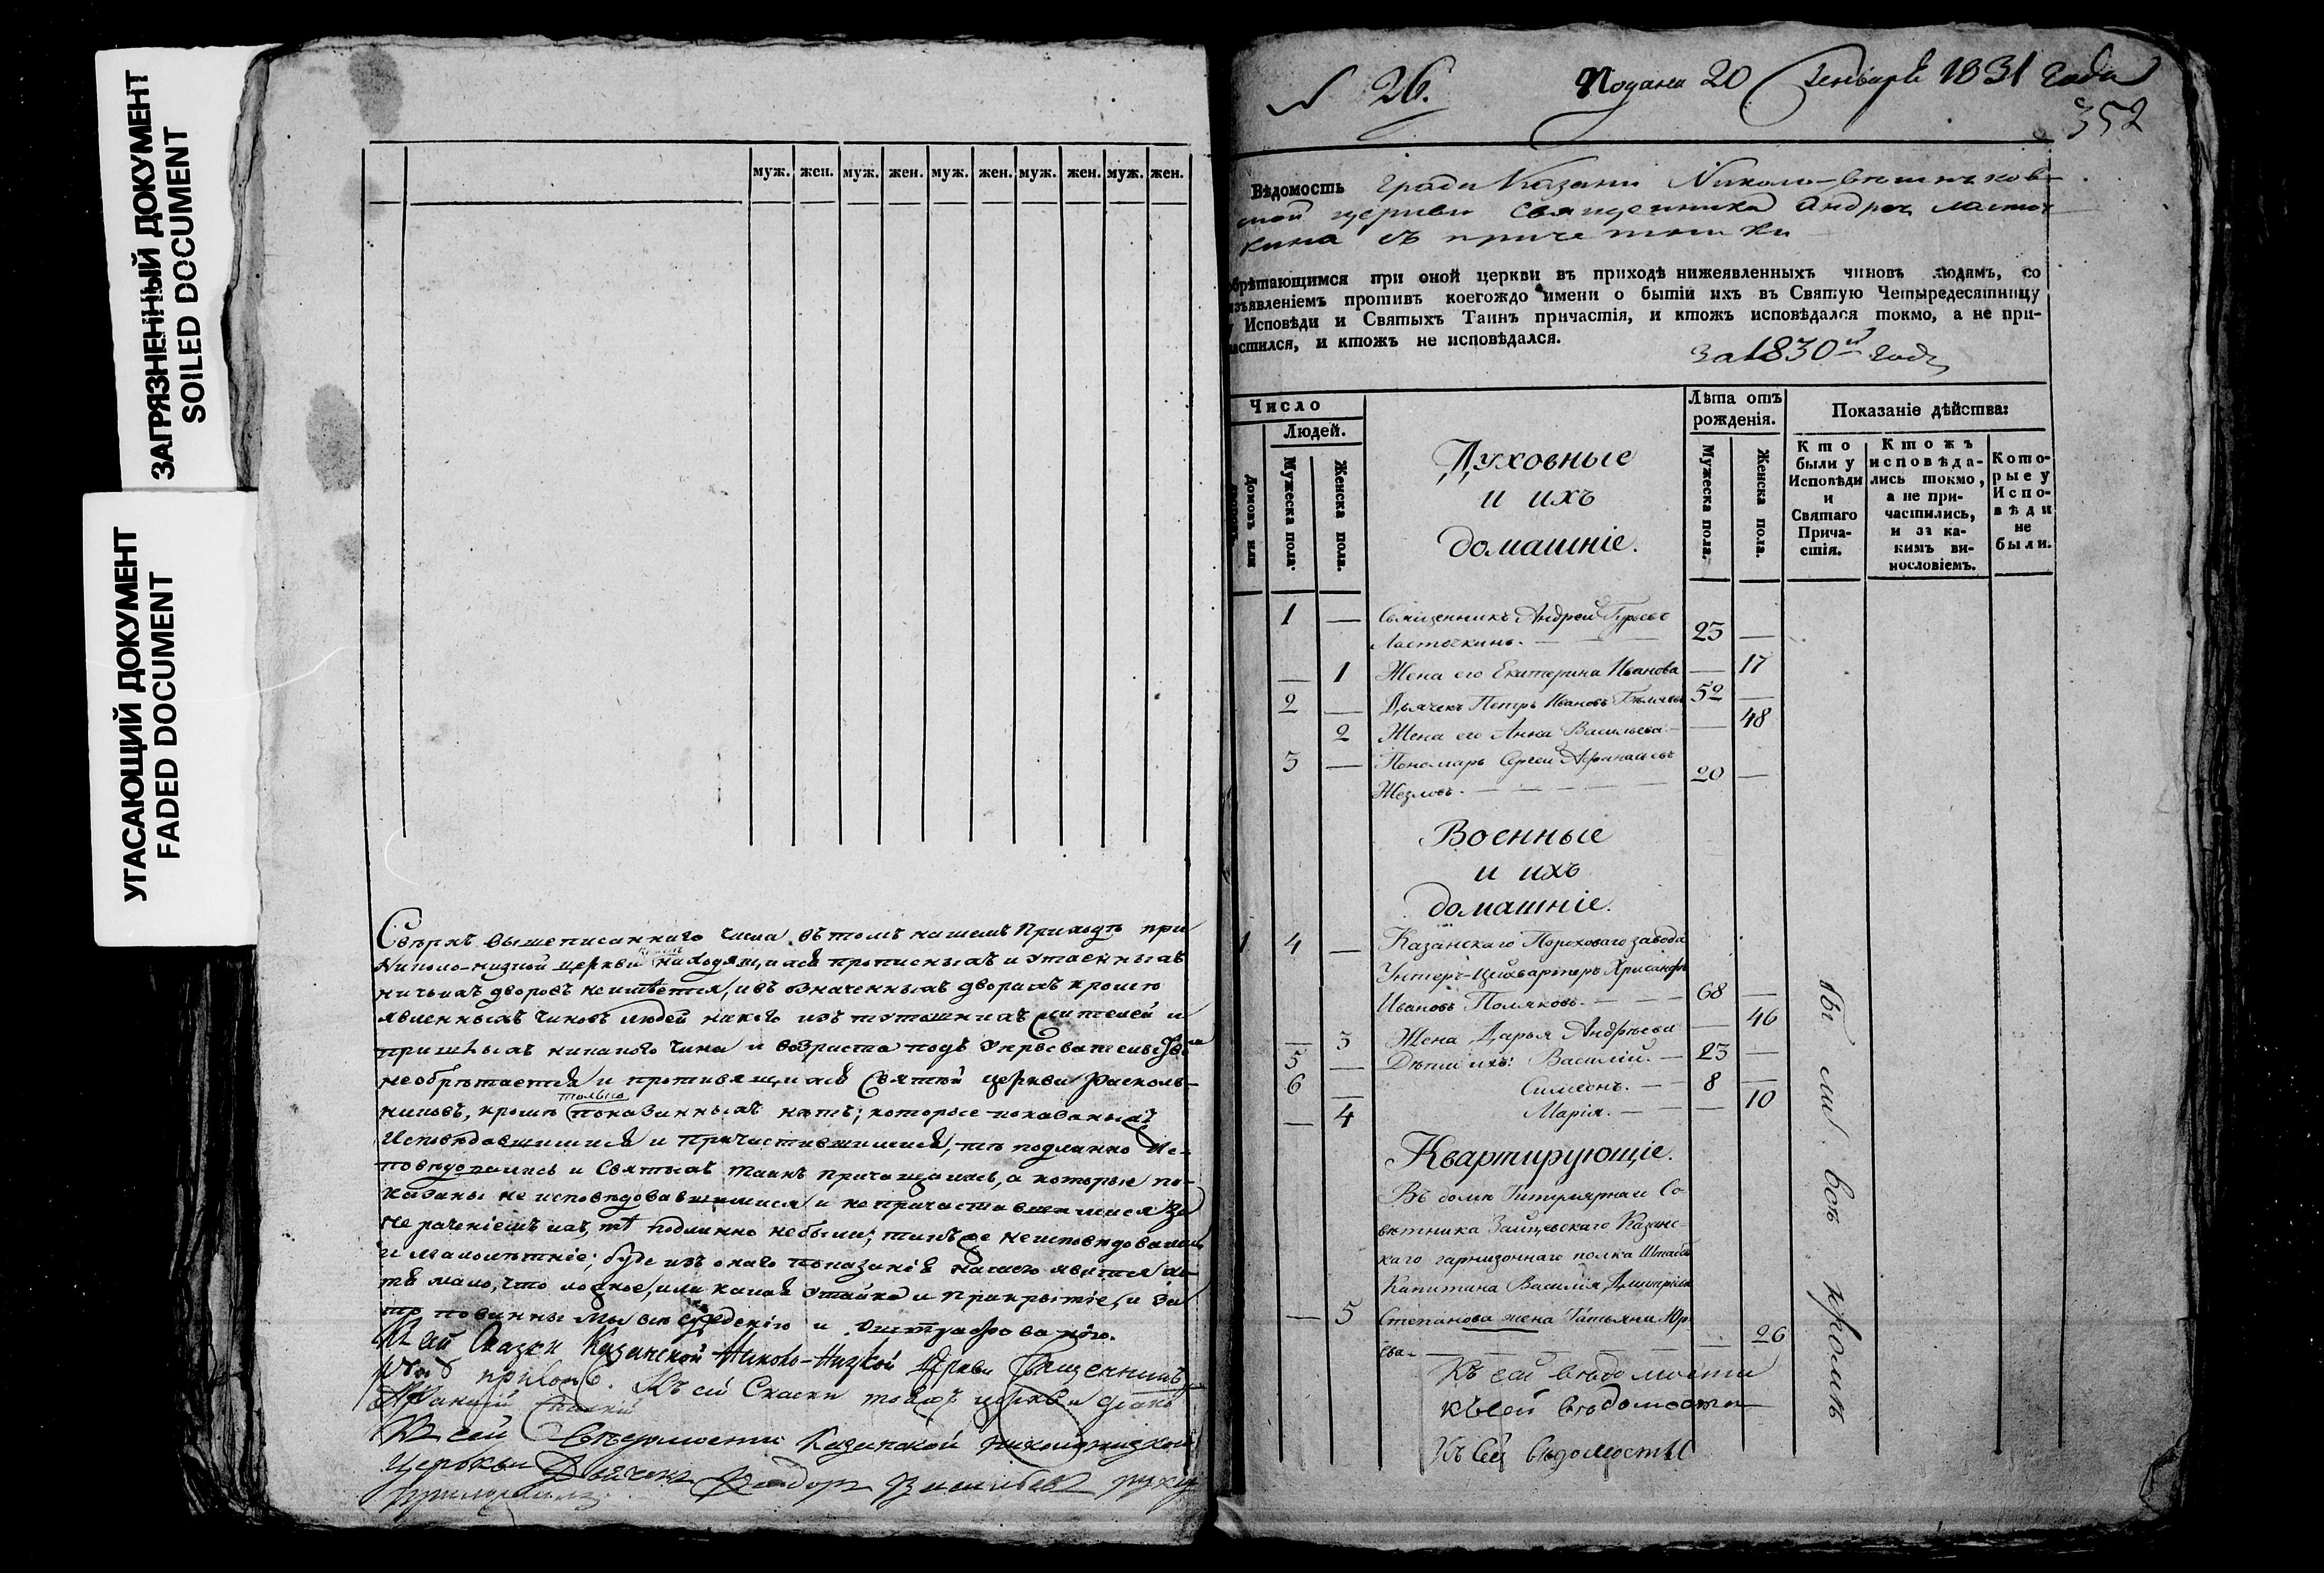 ЗАГРЯЗНЕННЫЙ ДОКУМЕНТ
SOILED DOCUMENT
УГАСАЮЩИЙ ДОКУМЕНТ
FADED DOCUMENT
муж. жен. муж. жен. муж. жен. муж. жен. муж. жен.
Сверхъ вышеписаннаго числа въ томъ нашемъ Приходѣ при
Николо-низкой церкви находящихся прописныхъ и утаенныхъ
ничьихъ дворовъ не имѣется, и въ означенныхъ дворахъ кромѣ
явленныхъ чиновъ людей никого изъ тутошнихъ жителей и
пришлыхъ никакого чина и возраста подъ укрывательствомъ
необрѣтается и противящихся Святѣй церкви раскольниковъ
никовъ, кромѣ только показанныхъ нѣтъ; которые показаны
Исповѣдавшимися и причастившимися, тѣ подлинно Ис-
повѣдовались и Святыхъ таинъ причащались, а которые по-
казаны не исповѣдовавшимися и не причастившимися за
нераченіемъ ихъ, тѣ подлинно небыли; также неисповѣдовались
и малолѣтніе; буде изъ онаго показанія нашего явится хо-
тя мало, что ложное, или какая утайка и прикрытіе, и за
то повинны мы сужденію и оштрафованію.
Къ сей Сказки Казанской Николо-Низкой Церкви Священникъ
руку приложилъ. Къ сей Сказки тояжъ церкви діаконъ
Къ сей Вѣдомости Казанской николонизкой
Церкви Дьячекъ Федоръ Васильевъ руку
приложилъ.
N 26. Подана 20 Генваря 1831 года
352
Вѣдомость града Казани Николо-вешняков-
ской церкви священника андрея ласточ
кина съ причетники
обрѣтающимся при оной церкви въ приходѣ нижеявленныхъ чиновъ людямъ, со
изъявленіемъ противъ коегождо имени о бытіи ихъ въ Святую Четыредесятницу
у Исповѣди и Святыхъ Таинъ причастія, и ктожъ исповѣдался токмо, а не при-
частился, и ктожъ не исповѣдался.
За 1830й годъ
Число
Людей.
Домовъ или дворовъ.
Мужеска пола.
Женска пола.
Духовные
и ихъ
домашніе.
Лѣта отъ рожденія.
Мужеска пола.
Женска пола.
Показаніе дѣйства:
Кто были у Исповѣди и Святаго Прича-стія.
Ктожъ исповѣда-лись токмо, а не при-частились, и за ка-кимъ ви-нословіемъ.
Кото-рые у Испо-вѣди не были.
1 — Священникъ Андрей Гурьевъ
Ласточкинъ. — 23 —
— 1 Жена его Екатерина Иванова — 17
2 — Дьячекъ Петръ Ивановъ Бѣляевъ 52 —
2 Жена его Анна Васильева — — 48
3 — Пономарь Сергей Афанасьевъ
Жезловъ. — 20 —
Военные
и ихъ
домашніе.
1 4 — Казанскаго Пороховаго завода
Унтеръ-Цейхвартеръ Хрисанфъ
Ивановъ Поляковъ. — 68 —
— 3 Жена Дарья Андрѣева — 46
5 — Дѣти ихъ: Василій. — 23 —
6 — Симеонъ. — 8 —
— 4 Марія. — — 10
Квартирующіе.
Въ домѣ Титулярнаго Со-
вѣтника Зайцевскаго Казанс-
каго гарнизоннаго полка Штабсъ
Капитана Василія Дмитріева
— 5 Степанова жена Татьяна Юр-
ева. — — 26
были всѣ кромѣ
Къ сей вѣдомости
къ сей вѣдомости
Къ сей вѣдомости